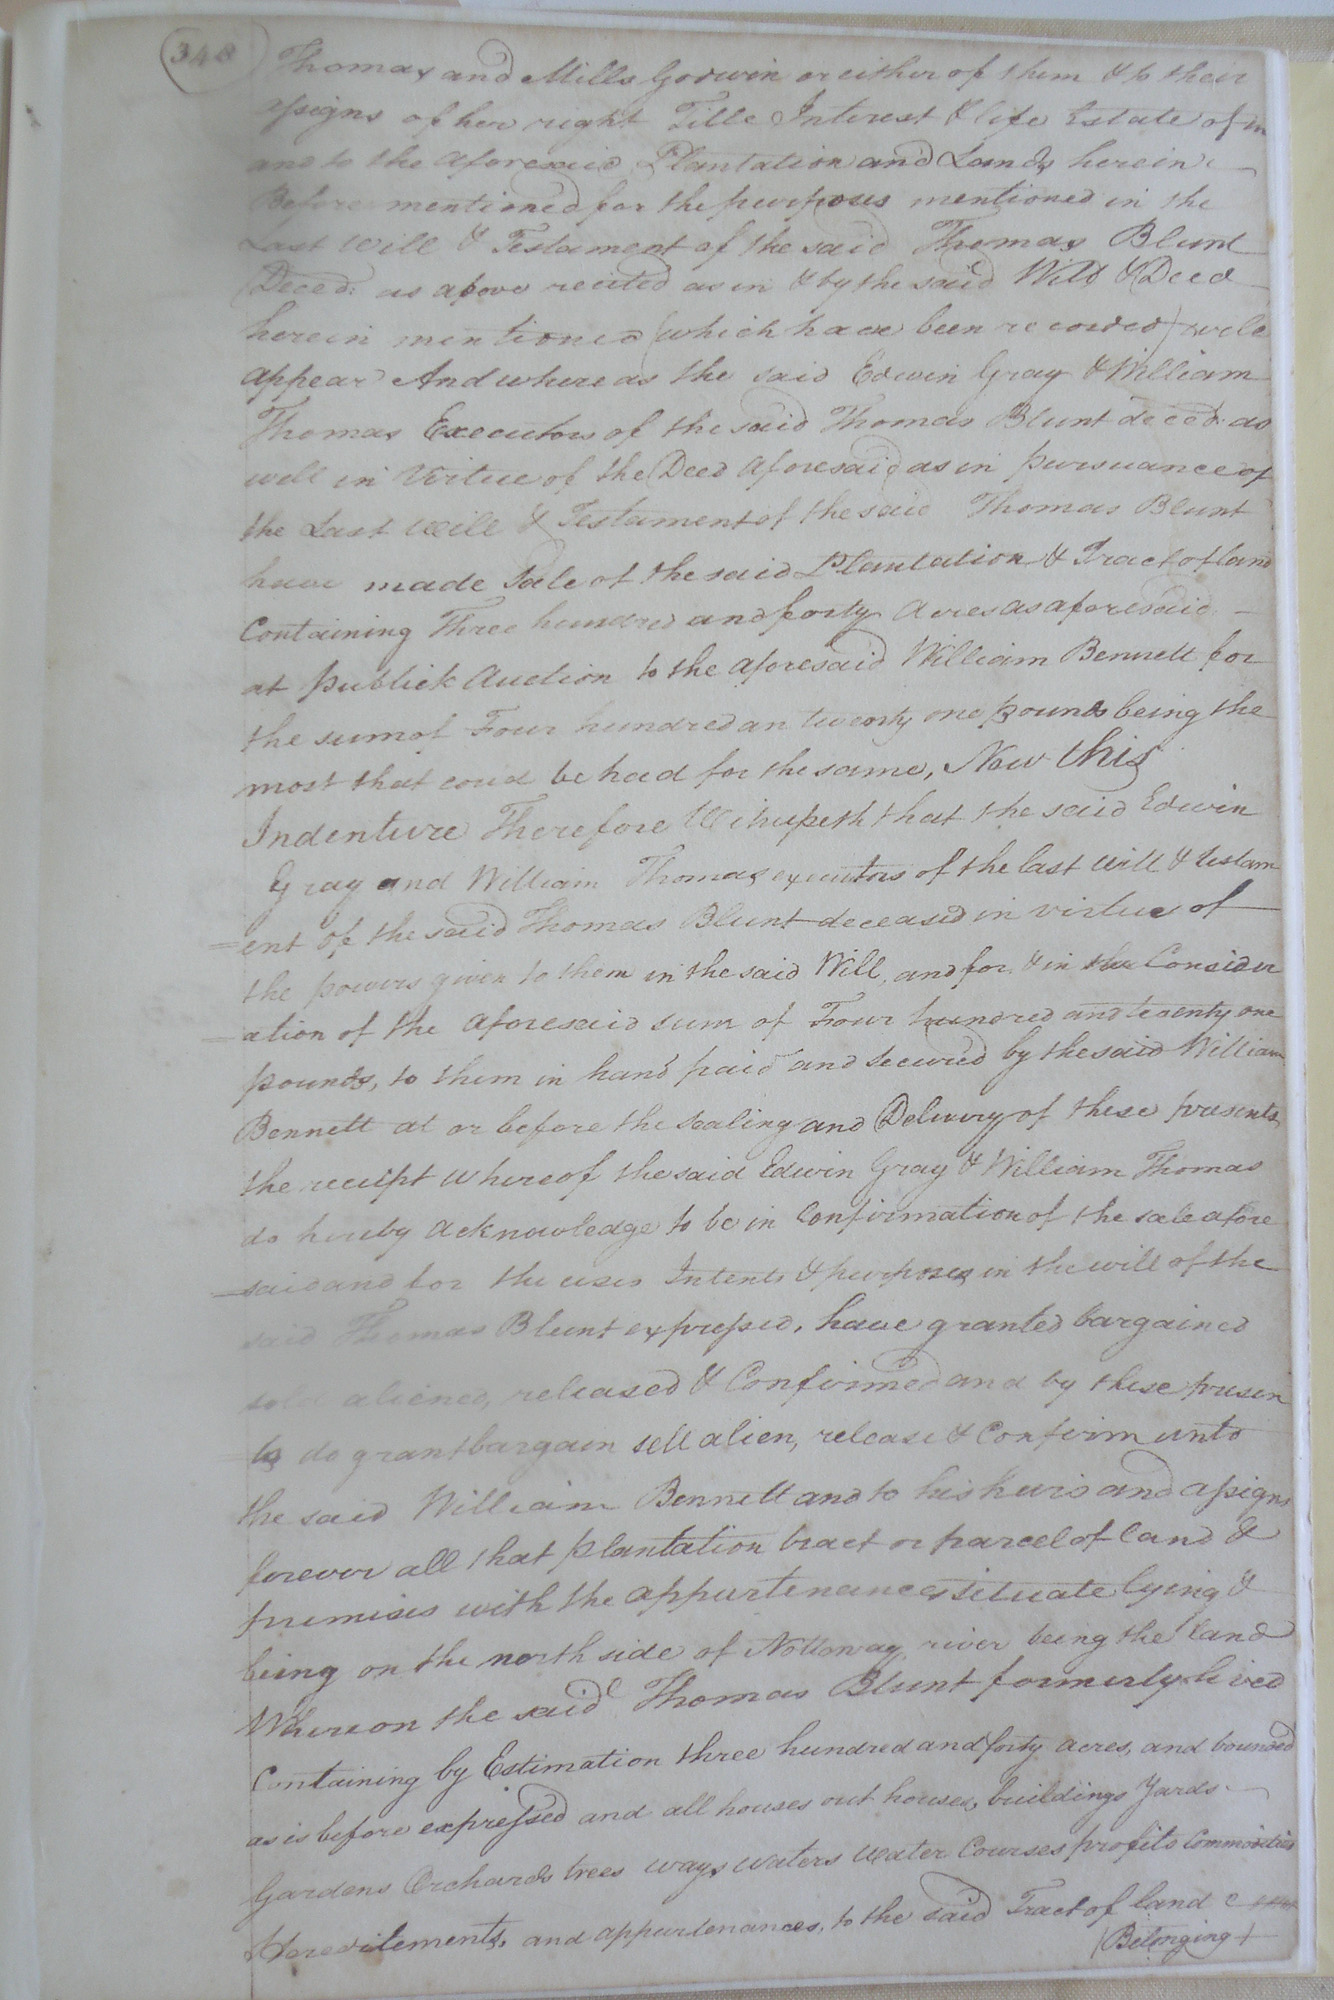 348
Thomas and Mills Godwin or either of them & to their
assigns of her right Title Interest & life Estate of in
and to the aforesaid Plantation and Lands herein
Before mentioned for the purposes mentioned in the
Last Will & Testament of the said Thomas Blunt
Deced: as above recited as in & by the said Will & Deed
herein mentioned (which have been recorded) will
appear And whereas the said Edwin Gray & William
Thomas Executors of the said Thomas Blunt deced: as
well in Virtue of the Deed aforesaid as in pursuance of
the Last Will & Testament of the said Thomas Blunt
have made Sale of the said Plantation & Tract of land
Containing Three hundred and forty Acres as aforesaid
at publick Auction to the aforesaid William Bennett for
the sum of Four hundred an twenty one pounds being the
most that coud be had for the same, Now this
Indenture Therefore Witnesseth that the said Edwin
Gray and William Thomas executors of the last will & testam
=ent of the said Thomas Blunt deceased in virtue of
the powers given to them in the said Will, and for & in the Consider
=ation of the aforesaid sum of Four hundred and twenty one
pounds, to them in hand paid and secured by the said William
Bennett at or before the sealing and Delivery of these presents
the receipt whereof the said Edwin Gray & William Thomas
do hereby acknowledge to be in Confirmation of the sale afore
=said and for the uses Intents & purposes in the will of the
said Thomas Blunt expressed, have granted bargained
sold aliened, released & Confirmed and by these presen
ts do grant bargain sell alien, release & Confirm unto
the said William Bennett and to his heirs and assigns
forever all that plantation tract or parcel of land &
premises with the appurtenances situate lying &
being on the north side of Nottoway river being the land
Whereon the said Thomas Blunt formerly lived
Containing by Estimation three hundred and forty acres, and bounded
as is before expressed and all houses out houses, buildings Yards
Gardens Orchards trees ways waters water Courses profits Commodities
Hereditements, and appurtenances, to the said Tract of land
(Belonging)